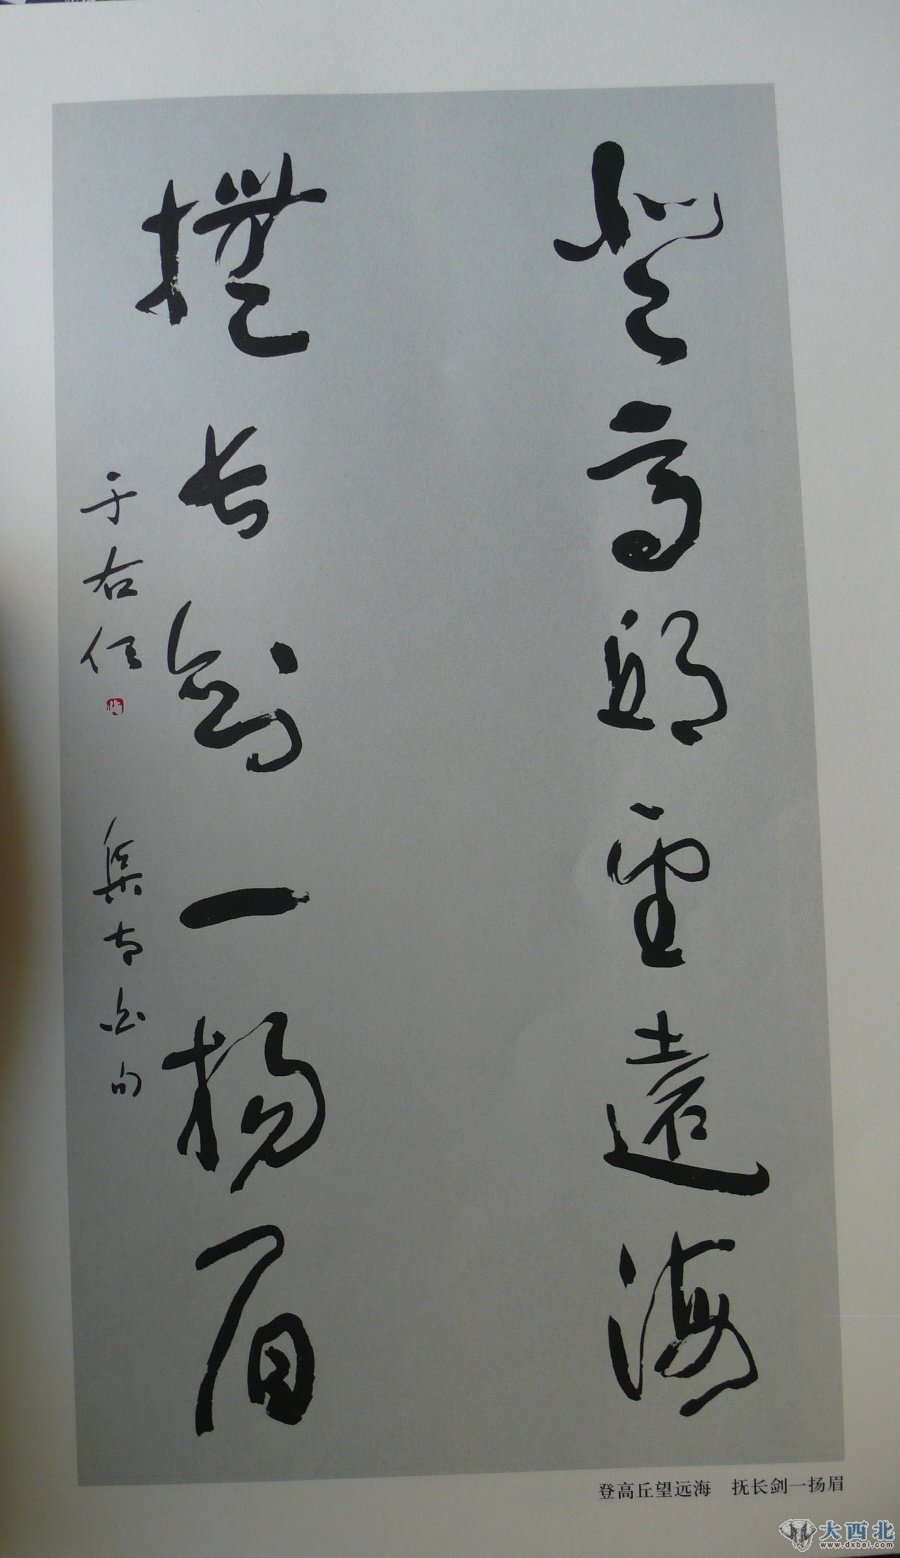 登高邱望遠海
撫长劍一揚眉
于右任
集太白句
登高丘望远海　抚长剑一扬眉
大西北
www.dxbei.com